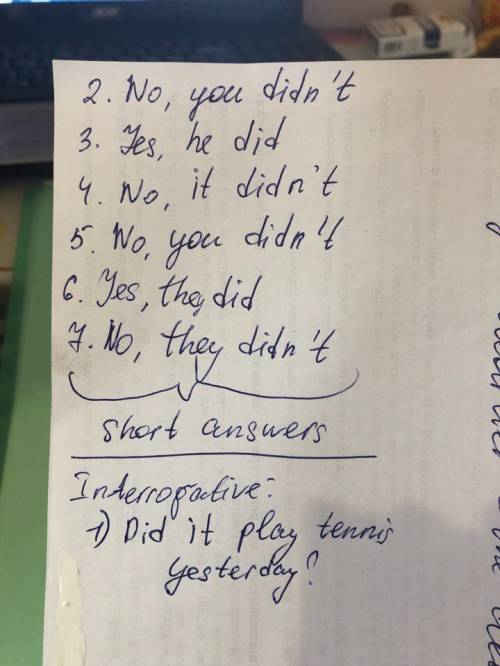 2. No, you didn't
3. Yes, he did
4. No, it didn't
5. No, you didn't
6. Yes, they did
7. No, they didn't
short answers
Interrogative:
1) Did it play tennis
yesterday?